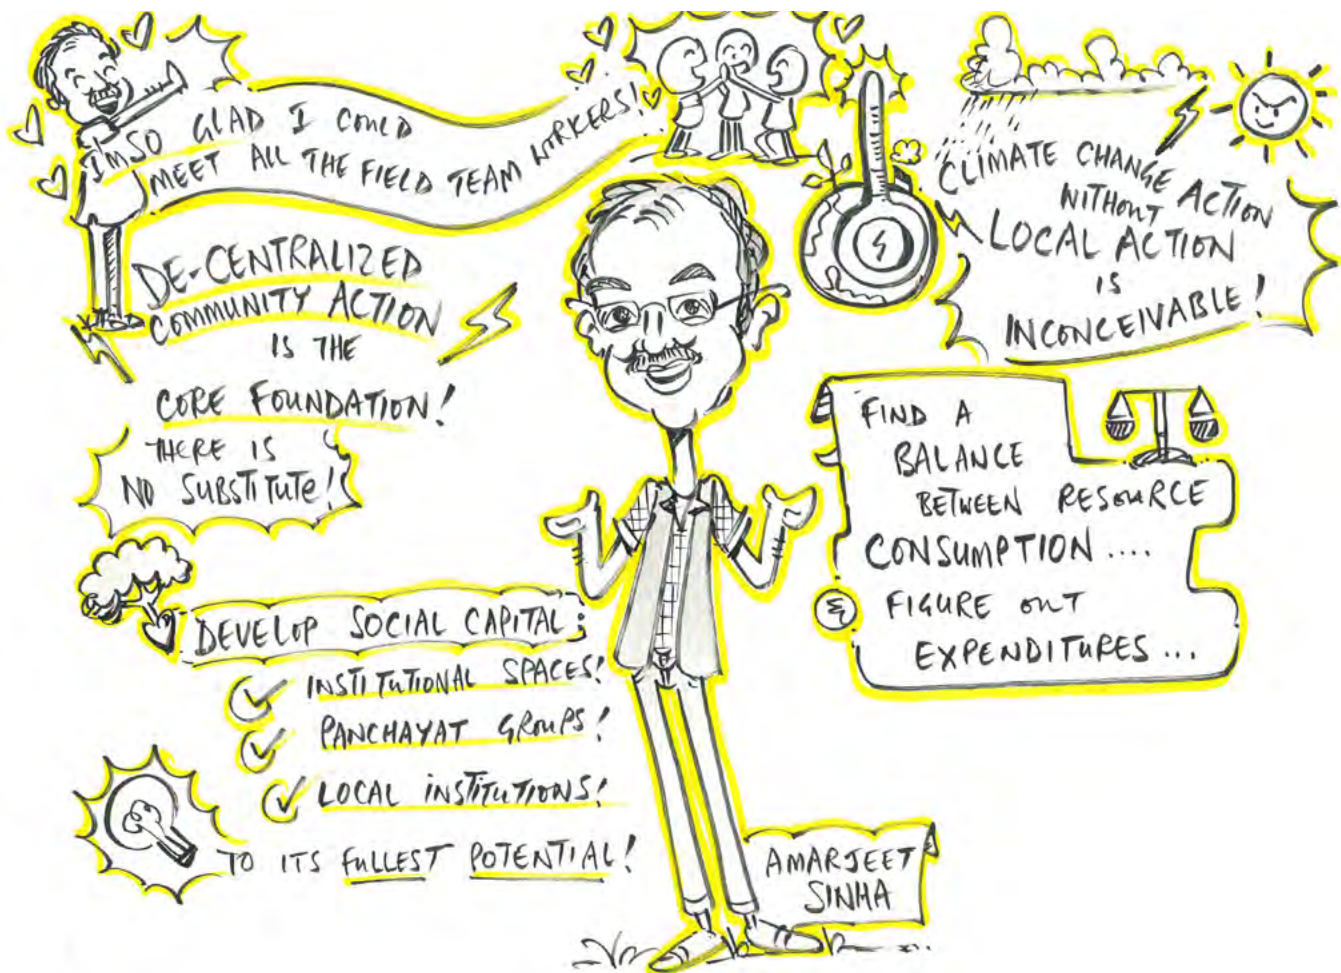 I'M SO GLAD I COULD
MEET ALL THE FIELD TEAM WORKERS!
DE-CENTRALIZED
COMMUNITY ACTION
IS THE
CORE FOUNDATION!
THERE IS
NO SUBSTITUTE!
DEVELOP SOCIAL CAPITAL:
INSTITUTIONAL SPACES!
PANCHAYAT GROUPS!
LOCAL INSTITUTIONS!
TO ITS FULLEST POTENTIAL!
CLIMATE CHANGE ACTION
WITHOUT
LOCAL ACTION
IS
INCONCEIVABLE!
FIND A
BALANCE
BETWEEN RESOURCE
CONSUMPTION....
FIGURE OUT
EXPENDITURES...
AMARJEET
SINHA